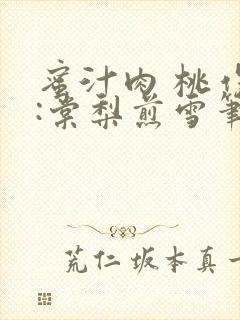 蜜汁肉桃作
:棠梨煎雪筆
荒仁坂本真一